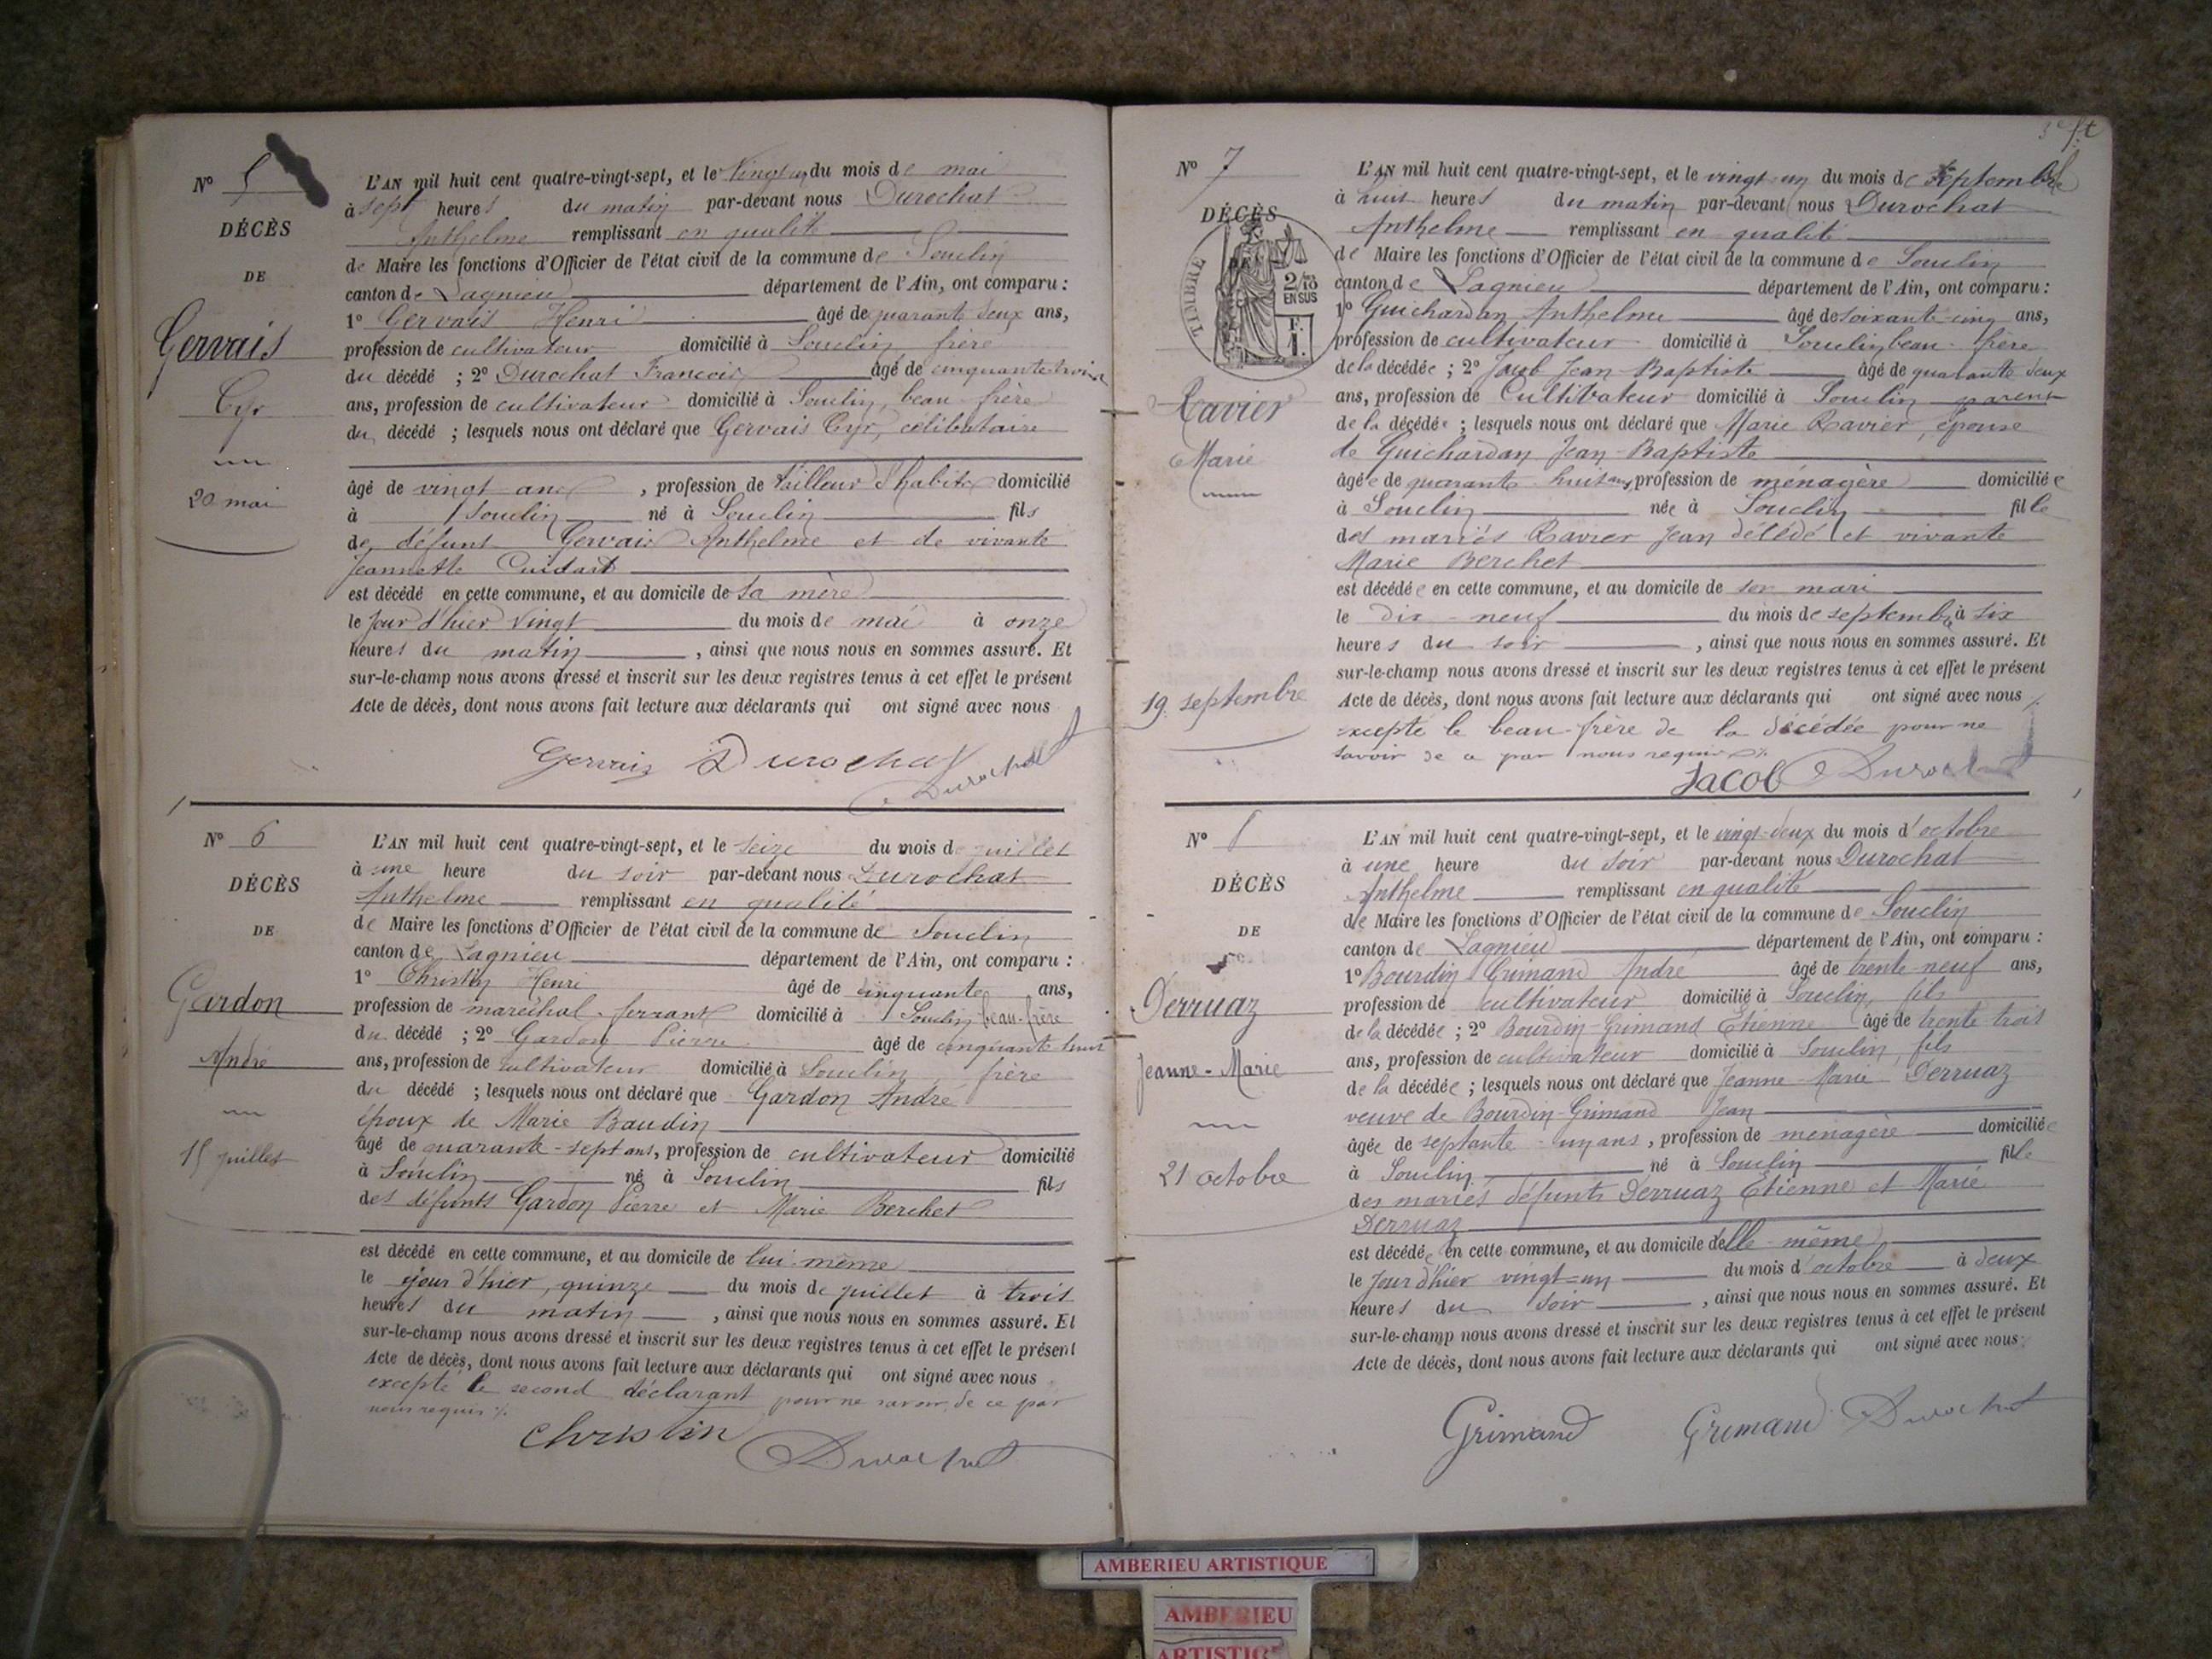 Nº 5
DÉCÈS
DE
Gervais
Cyr
20 mai
L'AN mil huit cent quatre-vingt-sept, et le vingt un du mois de mai
à sept heures du matin par-devant nous Durochat
Anthelme remplissant en qualité
de Maire les fonctions d'Officier de l'état civil de la commune de Souclin
canton de Lagnieu département de l'Ain, ont comparu :
1º Gervais Henri âgé de quarante deux ans,
profession de cultivateur domicilié à Souclin frère
du décédé ; 2º Durochat François âgé de cinquante trois
ans, profession de cultivateur domicilié à Souclin, beau-frère
du décédé ; lesquels nous ont déclaré que Gervais Cyr, célibataire
âgé de vingt ans, profession de tailleur d'habits domicilié
à Souclin né à Souclin fils
de défunt Gervais Anthelme et de vivante
Jeannette Cuidart
est décédé en cette commune, et au domicile de sa mère
le jour d'hier vingt du mois de mai à onze
heures du matin, ainsi que nous nous en sommes assuré. Et
sur-le-champ nous avons dressé et inscrit sur les deux registres tenus à cet effet le présent
Acte de décès, dont nous avons fait lecture aux déclarants qui ont signé avec nous
Gervais Durochat
Durochat
Nº 6
DÉCÈS
DE
Gardon
André
15 juillet
L'AN mil huit cent quatre-vingt-sept, et le seize du mois de juillet
à une heure du soir par-devant nous Durochat
Anthelme remplissant en qualité
de Maire les fonctions d'Officier de l'état civil de la commune de Souclin
canton de Lagnieu département de l'Ain, ont comparu :
1º Christin Henri âgé de cinquante ans,
profession de maréchal-ferrant domicilié à Souclin beau-frère
du décédé ; 2º Gardon Pierre âgé de cinquante huit
ans, profession de cultivateur domicilié à Souclin, frère
du décédé ; lesquels nous ont déclaré que Gardon André
époux de Marie Baudin
âgé de quarante-sept ans, profession de cultivateur domicilié
à Souclin né à Souclin fils
des défunts Gardon Pierre et Marie Berchet
est décédé en cette commune, et au domicile de lui-même
le jour d'hier, quinze du mois de juillet à trois
heures du matin, ainsi que nous nous en sommes assuré. Et
sur-le-champ nous avons dressé et inscrit sur les deux registres tenus à cet effet le présent
Acte de décès, dont nous avons fait lecture aux déclarants qui ont signé avec nous
excepté le second déclarant pour ne savoir de ce par
nous requis
Christin Durochat
Nº 7
DÉCÈS
TIMBRE
2/10
EN SUS
F.
1.
Ravier
Marie
19 septembre
L'AN mil huit cent quatre-vingt-sept, et le vingt-un du mois de septembre
à huit heures du matin par-devant nous Durochat
Anthelme remplissant en qualité
de Maire les fonctions d'Officier de l'état civil de la commune de Souclin
canton de Lagnieu département de l'Ain, ont comparu :
1º Guichardan Anthelme âgé de soixante-cinq ans,
profession de cultivateur domicilié à Souclin, beau-frère
de la décédée ; 2º Jacob Jean-Baptiste âgé de quarante deux
ans, profession de Cultivateur domicilié à Souclin parent
de la décédée ; lesquels nous ont déclaré que Marie Ravier, épouse
de Guichardan Jean-Baptiste
âgée de quarante-huit ans, profession de ménagère domiciliée
à Souclin née à Souclin fille
des mariés Ravier Jean décédé et vivante
Marie Berchet
est décédée en cette commune, et au domicile de son mari
le dix-neuf du mois de septembre à six
heures du soir, ainsi que nous nous en sommes assuré. Et
sur-le-champ nous avons dressé et inscrit sur les deux registres tenus à cet effet le présent
Acte de décès, dont nous avons fait lecture aux déclarants qui ont signé avec nous
excepté le beau-frère de la décédée pour ne
savoir de ce par nous requis
Jacob Durochat
Nº 8
DÉCÈS
DE
Derruaz
Jeanne-Marie
21 octobre
L'AN mil huit cent quatre-vingt-sept, et le vingt-deux du mois d'octobre
à une heure du soir par-devant nous Durochat
Anthelme remplissant en qualité
de Maire les fonctions d'Officier de l'état civil de la commune de Souclin
canton de Lagnieu département de l'Ain, ont comparu :
1º Bourdin-Grimand André âgé de trente-neuf ans,
profession de cultivateur domicilié à Souclin, fils
de la décédée ; 2º Bourdin-Grimand Étienne âgé de trente-trois
ans, profession de cultivateur domicilié à Souclin, fils
de la décédée ; lesquels nous ont déclaré que Jeanne-Marie Derruaz
veuve de Bourdin-Grimand Jean
âgée de septante-un ans, profession de ménagère domiciliée
à Souclin né à Souclin fille
des mariés défunts Derruaz Etienne et Marie
Derruaz
est décédée en cette commune, et au domicile d'elle-même
le jour d'hier vingt-un du mois d'octobre à deux
heures du soir, ainsi que nous nous en sommes assuré. Et
sur-le-champ nous avons dressé et inscrit sur les deux registres tenus à cet effet le présent
Acte de décès, dont nous avons fait lecture aux déclarants qui ont signé avec nous
Grimand Grimand Durochat
AMBERIEU ARTISTIQUE
AMBERIEU
ARTISTIQ